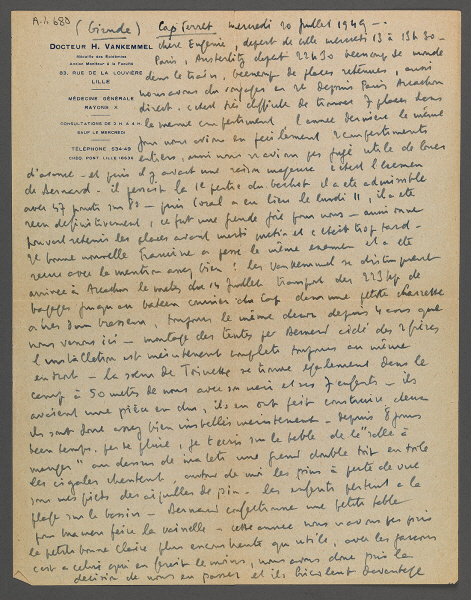 A.1. 680
(Gironde) Cap Ferret mercredi 20 juillet 1949 -.
DOCTEUR H. VANKEMMEL
Ancien Moniteur à la Faculté
83, RUE DE LA LOUVIÈRE
LILLE
MÉDECINE GÉNÉRALE
RAYONS X
CONSULTATIONS DE 2 H. A 4 H.
SAUF LE MERCREDI
TÉLÉPHONE 534-49
CHÈQ. POST. LILLE
chère Eugénie, départ de Lille mercredi 13 à 13h30 -
Paris, Austerlitz départ 22h30 beaucoup de monde
dans le train, beaucoup de places retenues, aussi
nous avons du voyager en 2e depuis Paris Arcachon
direct. c'est très difficile de trouver 7 places dans
le même compartiment. l'année dernière le même
jour nous avions eu facilement 2 compartiments
entiers, aussi nous n'avions pas jugé utile de louer
d'avance - et puis il y avait une raison majeure c'était l'examen
de Bernard - il passait la 1e partie du bachot il a été admissible
avec 47 points sur 80 - puis l'oral a eu lieu le lundi 11, il a été
reçu définitivement, ce fut une grande joie pour nous - aussi on ne
pouvait retenir les places avant mardi matin et c'était trop tard -
2e bonne nouvelle Francine a passé le même examen et a été
reçue avec la mention assez bien! les Vankemmel se distinguent
arrivée à Arcachon le matin du 14 juillet transport des 225 kg de
bagages jusqu'au bateau courrier du Cap dans une petite charrette
à nos bons brasseurs, toujours le même décor depuis 4 ans que
nous venons ici - montage des tentes par Bernard aidé des 2 frères
l'installation est maintenant complète toujours au même
endroit - la soeur de Toinette se trouve également dans le
camp à 50 mètres de nous avec son mari et ses 7 enfants - ils
avaient une pièce en dur, ils en ont fait construire deux
ils sont donc assez bien installés maintenant - depuis 8 jours
beau temps, pas de pluie, je t'écris sur la table de la "salle à
manger" au dessus de ma tête une grand double toit en toile
les cigales chantent, autour de moi les pins à perte de vue
sous mes pieds des aiguilles de pin - les enfants partent à la
plage sur le bassin - Bernard confectionne une petite table
pour maman faire la vaisselle - cette année nous n'avons pas pris
la petite bonne Claire plus encombrante qu'utile, avec les garçons
c'est à celui qui en ferait le moins, nous avons donc pris la
décision de nous en passer et ils bricolent davantage